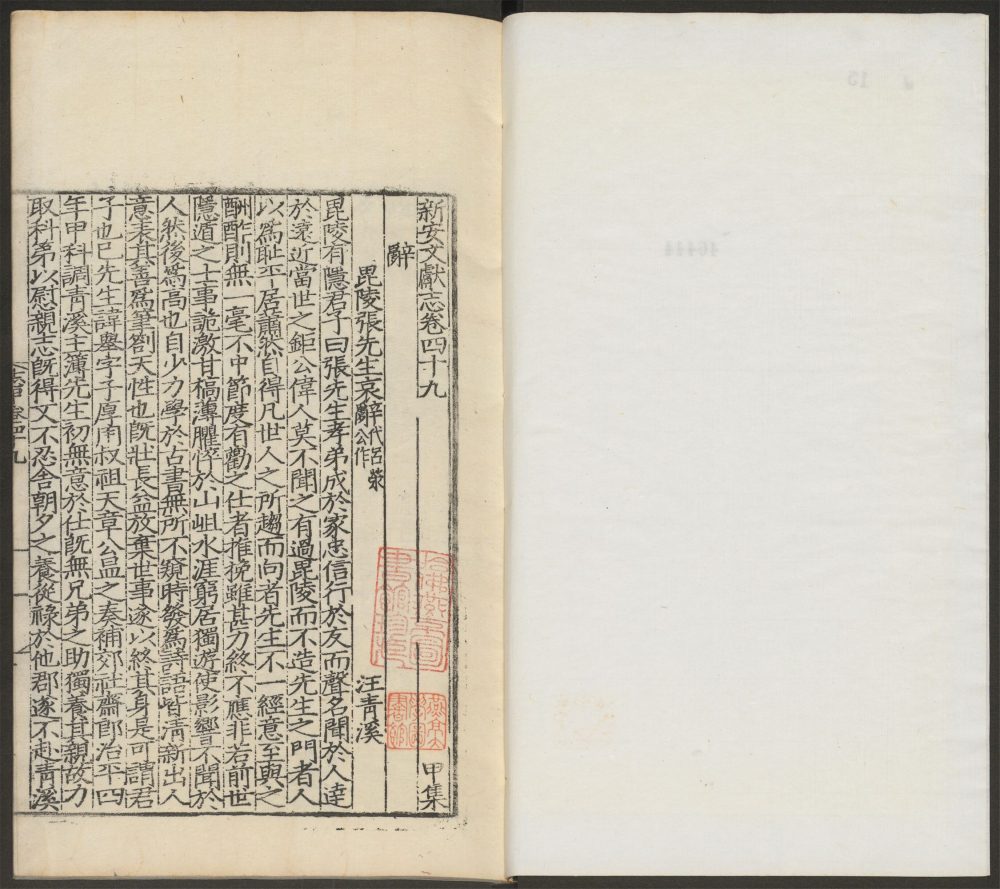 新安文獻志卷四十九 甲集
辭
毘陵張先生哀辭代呂滎公作 汪青溪
毘陵有隱君子曰張先生孝弟成於家忠信行於友而聲名聞於人達
於遠近當世之鉅公偉人莫不聞之有過毘陵而不造先生之門者人
以爲恥平居蕭然自得凡世人之所趨而向者先生不一經意至與之
酬酢則無一毫不中節度有勸之仕者推挽雖甚力終不應非若前世
隱遁之士事詭激甘槁薄臞悴於山岨水涯窮居獨遊使影響不聞於
人然後爲高也自少力學於古書無所不窺時發爲詩語皆淸新出人
意表其善爲筆劄天性也旣壯長益放棄世事遂以終其身是可謂君
子也巳先生諱舉字子厚甫叔祖天章公昷之奏補郊社齋郎治平四
年甲科調青溪主簿先生初無意於仕旣無兄弟之助獨養其親故力
取科第以慰親志旣得又不忍舍朝夕之養從祿於他郡遂不赴青溪